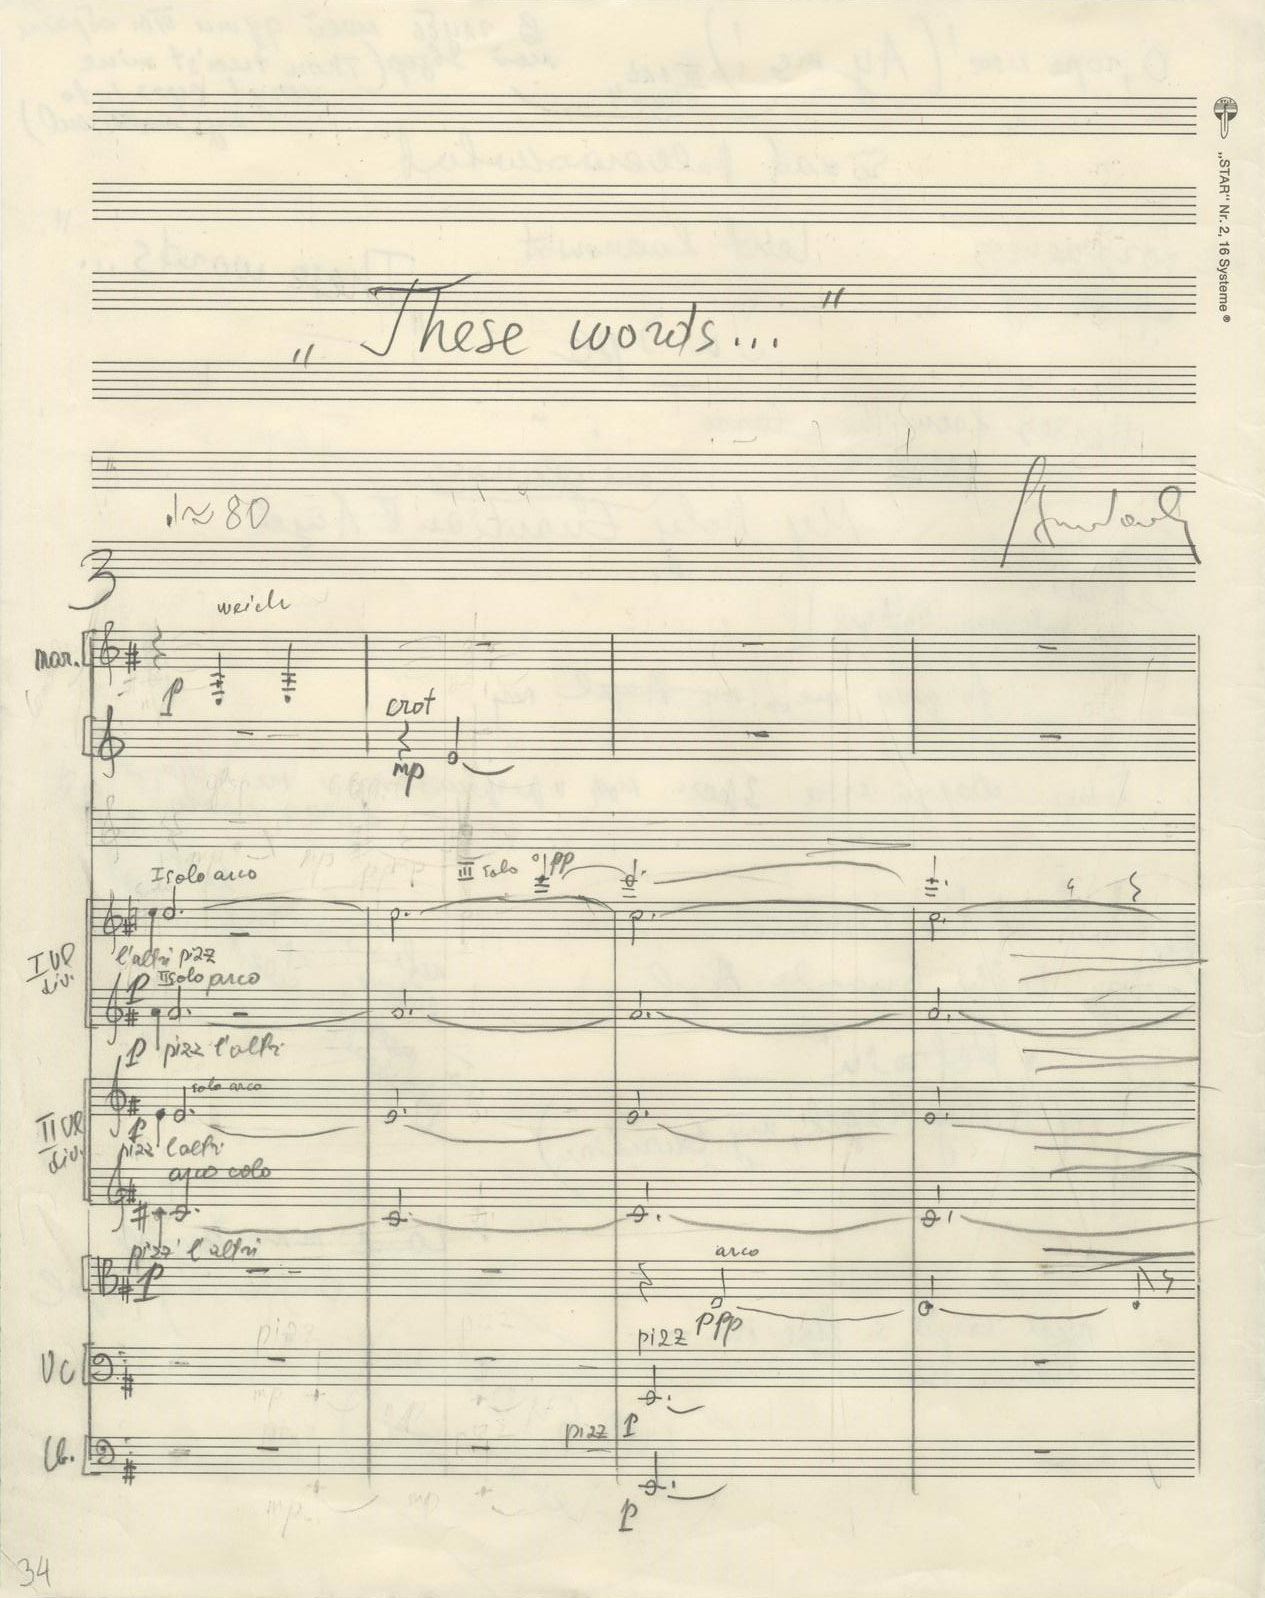 „STAR“ Nr. 2, 16 Systeme®
„These words..."
♩≈ 80
3
weich
mar.
p
crot
mp
III solo
pp
I solo arco
I Vl
div.
l'altri pizz
p II solo arco
p pizz l'altri
solo arco
II Vl
div.
p
pizz l'altri
arco solo
pizz l'altri
p
arco
ppp
pizz
Vc
p
pizz
Cb.
p
34